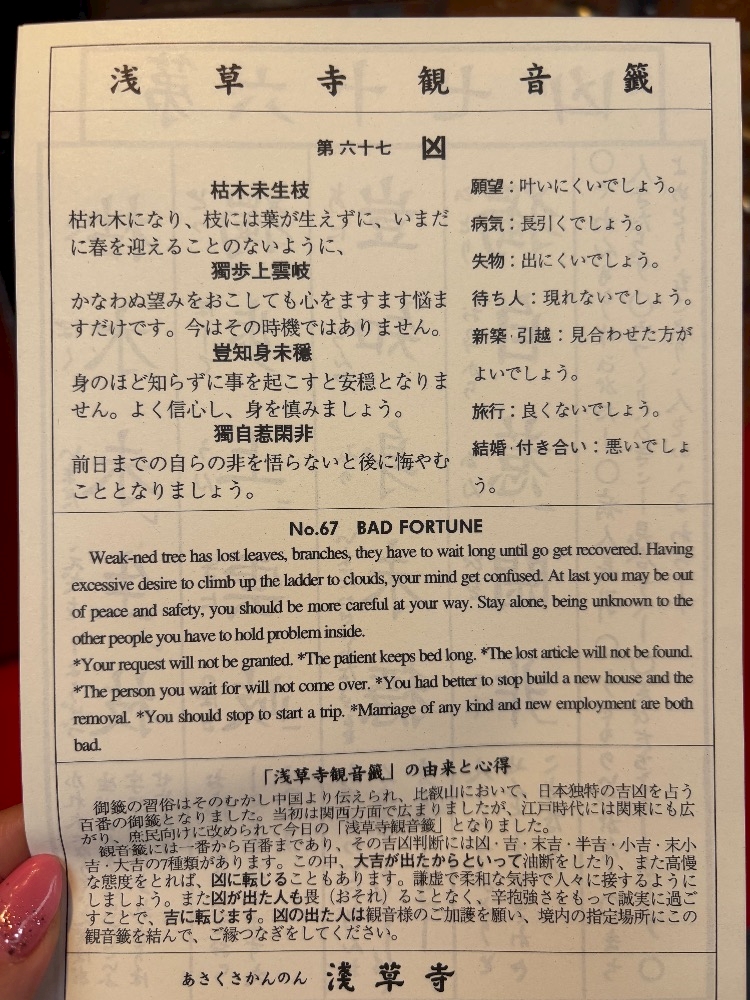 浅草寺観音籤
第六十七 凶
枯木未生枝
枯れ木になり、枝には葉が生えずに、いまだ
に春を迎えることのないように、
獨歩上雲岐
かなわぬ望みをおこしても心をますます悩ま
すだけです。今はその時機ではありません。
豈知身未穩
身のほど知らずに事を起こすと安穏となりま
せん。よく信心し、身を慎みましょう。
獨自惹閑非
前日までの自らの非を悟らないと後に悔やむ
こととなりましょう。
願望：叶いにくいでしょう。
病気：長引くでしょう。
失物：出にくいでしょう。
待ち人：現れないでしょう。
新築·引越：見合わせた方が
よいでしょう。
旅行：良くないでしょう。
結婚·付き合い：悪いでしょ
う。
No.67 BAD FORTUNE
Weak-ned tree has lost leaves, branches, they have to wait long until go get recovered. Having
excessive desire to climb up the ladder to clouds, your mind get confused. At last you may be out
of peace and safety, you should be more careful at your way. Stay alone, being unknown to the
other people you have to hold problem inside.
*Your request will not be granted. *The patient keeps bed long. *The lost article will not be found.
*The person you wait for will not come over. *You had better to stop build a new house and the
removal. *You should stop to start a trip. *Marriage of any kind and new employment are both
bad.
「浅草寺観音籤」の由来と心得
御籤の習俗はそのむかし中国より伝えられ、比叡山において、日本独特の吉凶を占う
百番の御籤となりました。当初は関西方面で広まりましたが、江戸時代には関東にも広
がり、庶民向けに改められて今日の「浅草寺観音籤」となりました。
観音籤には一番から百番まであり、その吉凶判断には凶・吉・末吉・半吉・小吉・末小
吉・大吉の7種類があります。この中、大吉が出たからといって油断をしたり、また高慢
な態度をとれば、凶に転じることもあります。謙虚で柔和な気持で人々に接するように
しましょう。また凶が出た人も畏（おそれ）ることなく、辛抱強さをもって誠実に過ご
すことで、吉に転じます。凶の出た人は観音様のご加護を願い、境内の指定場所にこの
観音籤を結んで、ご縁つなぎをしてください。
あさくさかんのん 淺草寺